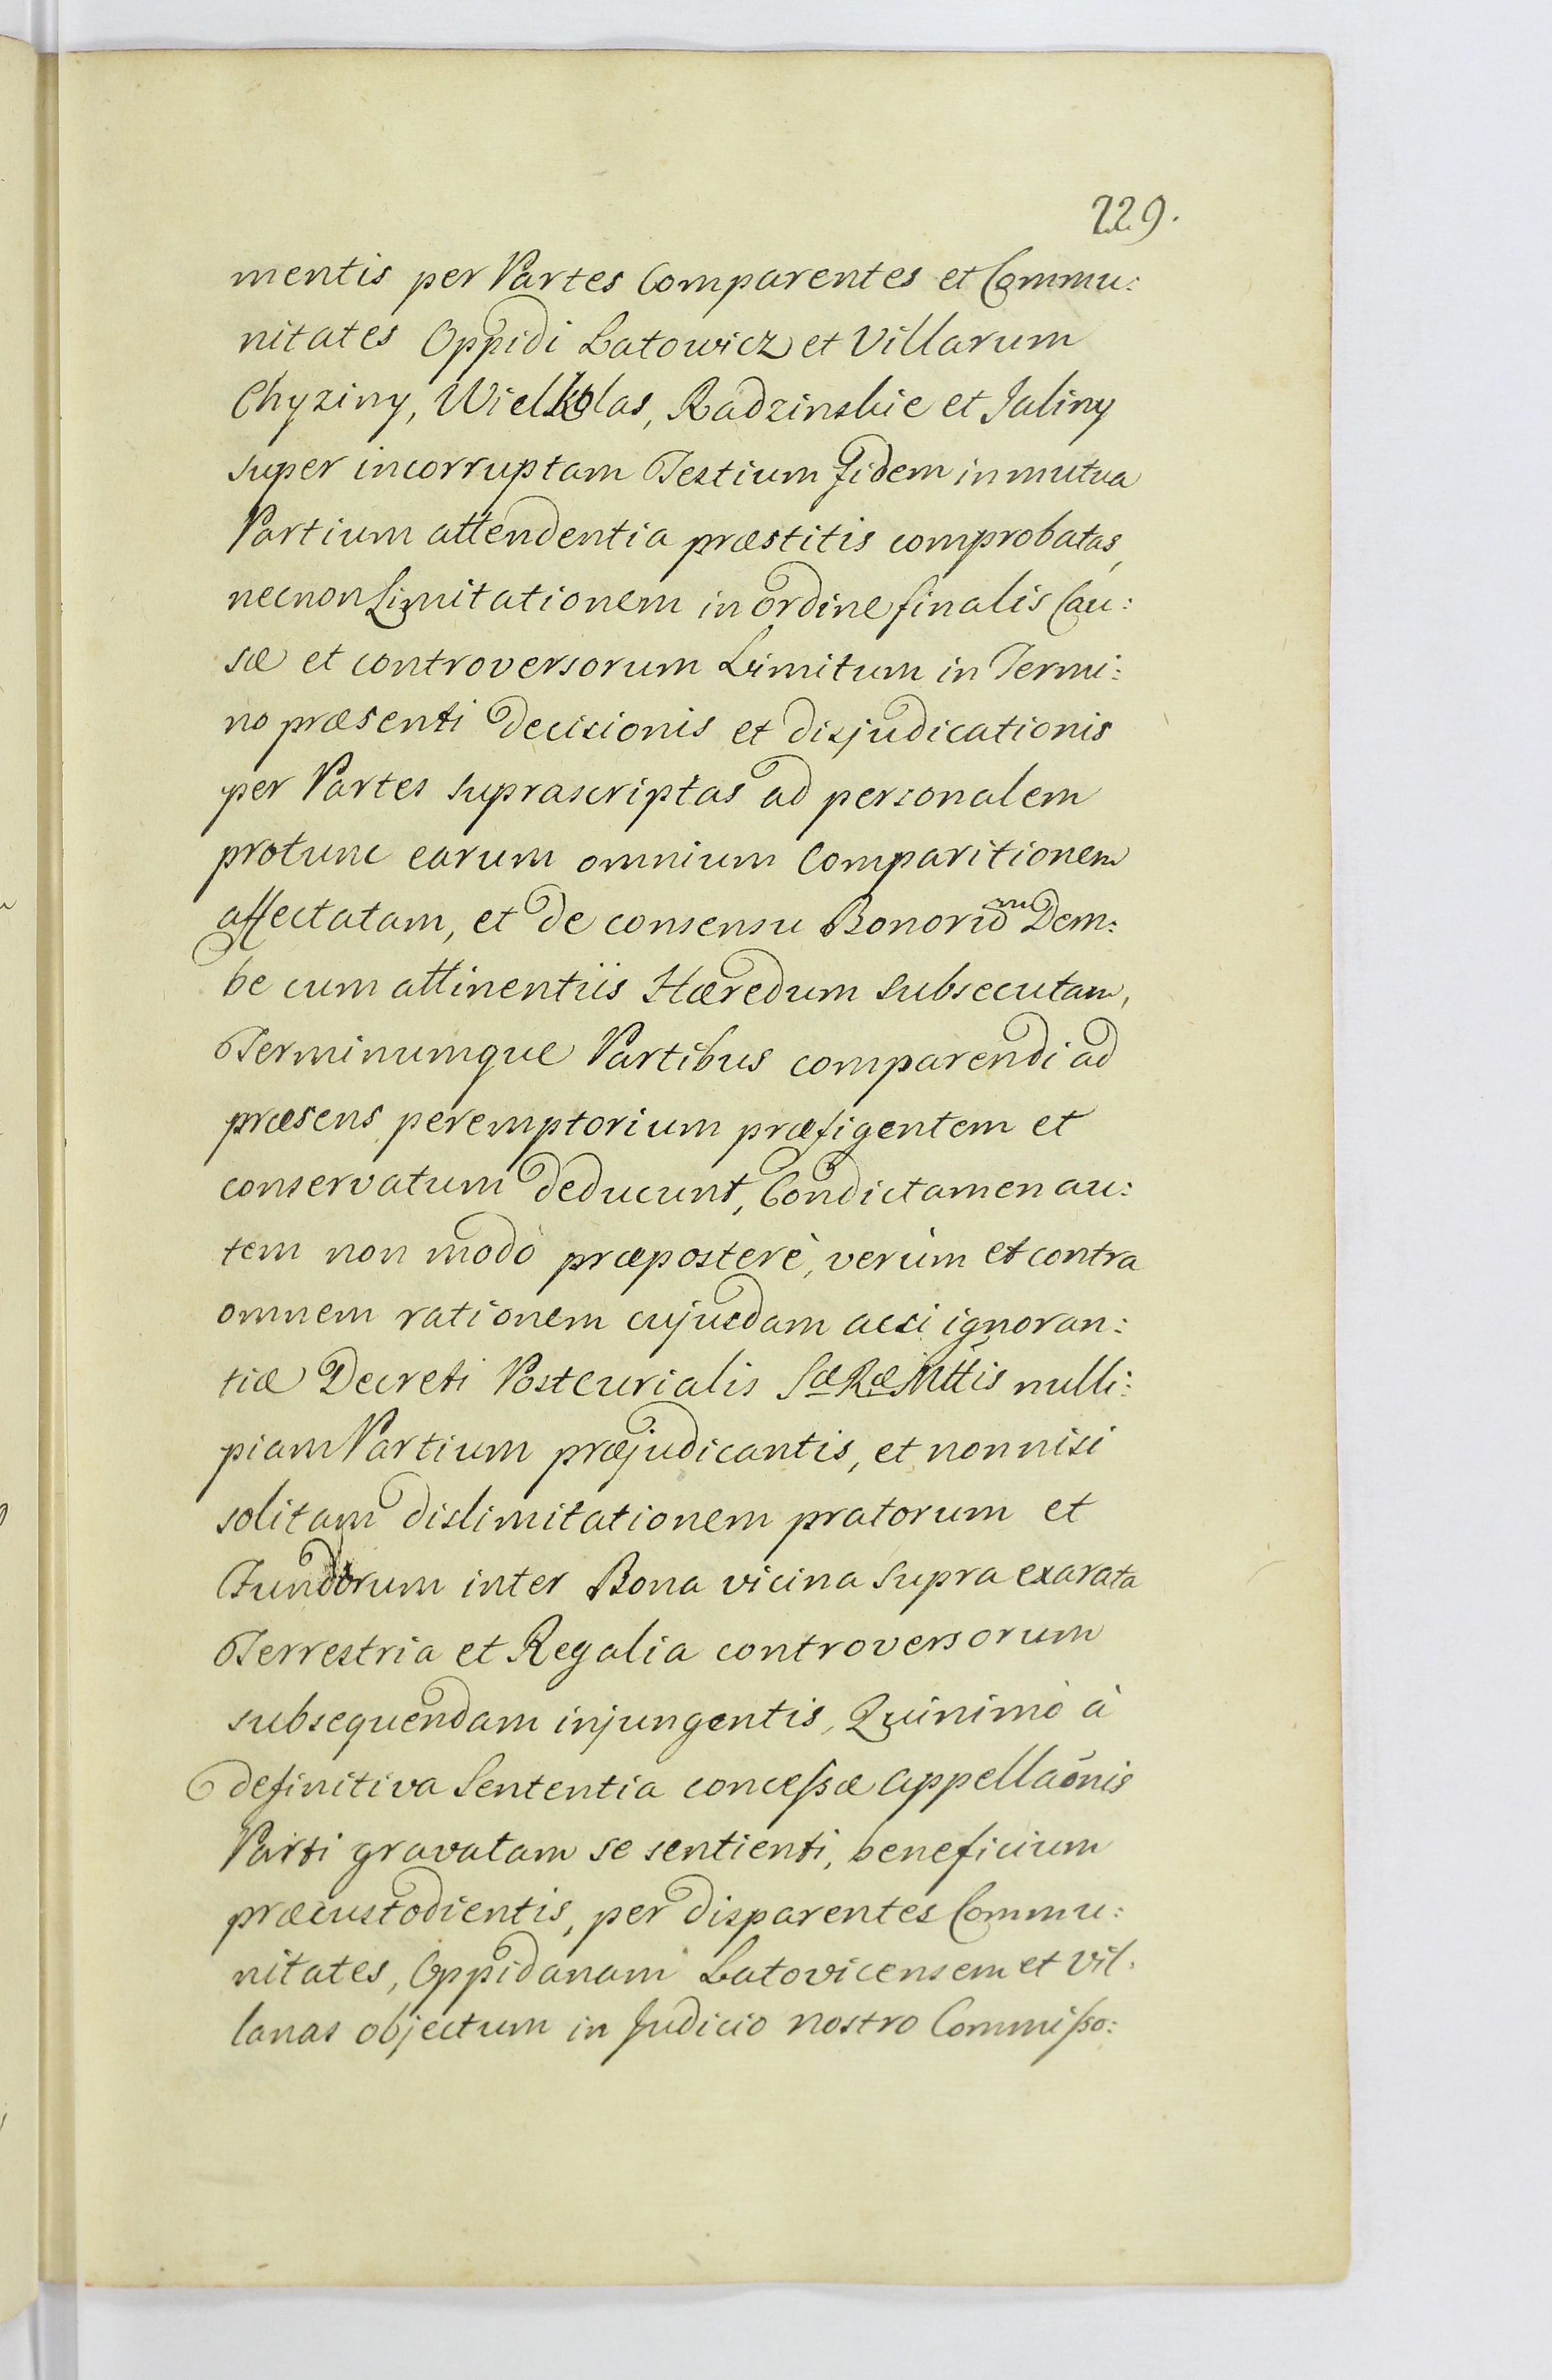 229.
mentis per Partes Comparentes et Commu:
nitates Oppidi Latowicz et Villarum
Chyziny, Wielkolas, Radzinskie et Jaliny
super incorruptam Testium Fidem in mutua
Partium attendentia præstitis comprobatas,
necnon Limitationem in ordine finalis Cau:
sæ et controversorum Limitum in Termi:
no præsenti decisionis et disjudicationis
per Partes suprascriptas ad personalem
protunc earum omnium Comparitionem
affectatam, et de consensu Bonorum Dem:
be cum attinentiis Hæredum subsecutam,
Terminumque Partibus comparendi ad
præsens peremptorium præfigentem et
conservatum deducunt, Condictamen au:
tem non modò præposterè, verùm et contra
omnem rationem cujusdam acsi ignoran:
tiæ Decreti Postcurialis Sæ Ræ Mttis nulli:
piam Partium præjudicantis, et nonnisi
solitam dislimitationem pratorum et
Fundorum inter Bona vicina supra exarata
Terrestria et Regalia controversorum
subsequendam injungentis, Quinimò à
definitiva Sententia concessæ appellaõnis
Parti gravatam se sentienti, beneficium
præcustodientis, per disparentes Commu:
nitates, Oppidanam Latovicensem et Vil.
lanas objectum in Judicio nostro Commisso: